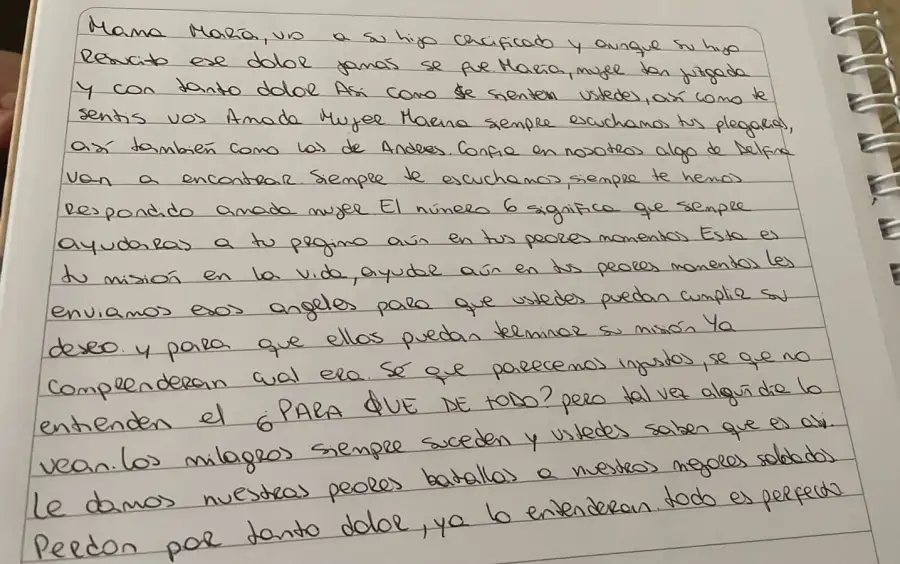 Mama Maria, vio a su hijo crucificado y aunque su hijo
Resucito ese dolor jamas se fue. Maria, mujer tan juzgada
y con tanto dolor Asi como se sienten ustedes, así como te
sentis vos Amada Mujer Maria siempre escuchamos tus plegarias,
así también como las de Andres. Confia en nosotros algo de Delfina
van a encontrar. Siempre te escuchamos, siempre te hemos
respondido amada mujer El número 6 significa que siempre
ayudaras a tu progimo aún en tus peores momentos Esta es
tu misión en la vida, ayudar aún en tus peores momentos les
enviamos esos angeles para que ustedes puedan cumplir su
deseo. y para que ellos puedan terminar su misión Ya
comprenderan cual era. Sé que parecemos injustos, se que no
entienden el ¿PARA QUE DE TODO? pero tal vez algún dia lo
vean. los milagros siempre suceden y ustedes saben que es asi.
Le damos nuestras peores batallas a nuestros mejores soldados
Perdon por tanto dolor, ya lo entenderan todo es perfecto